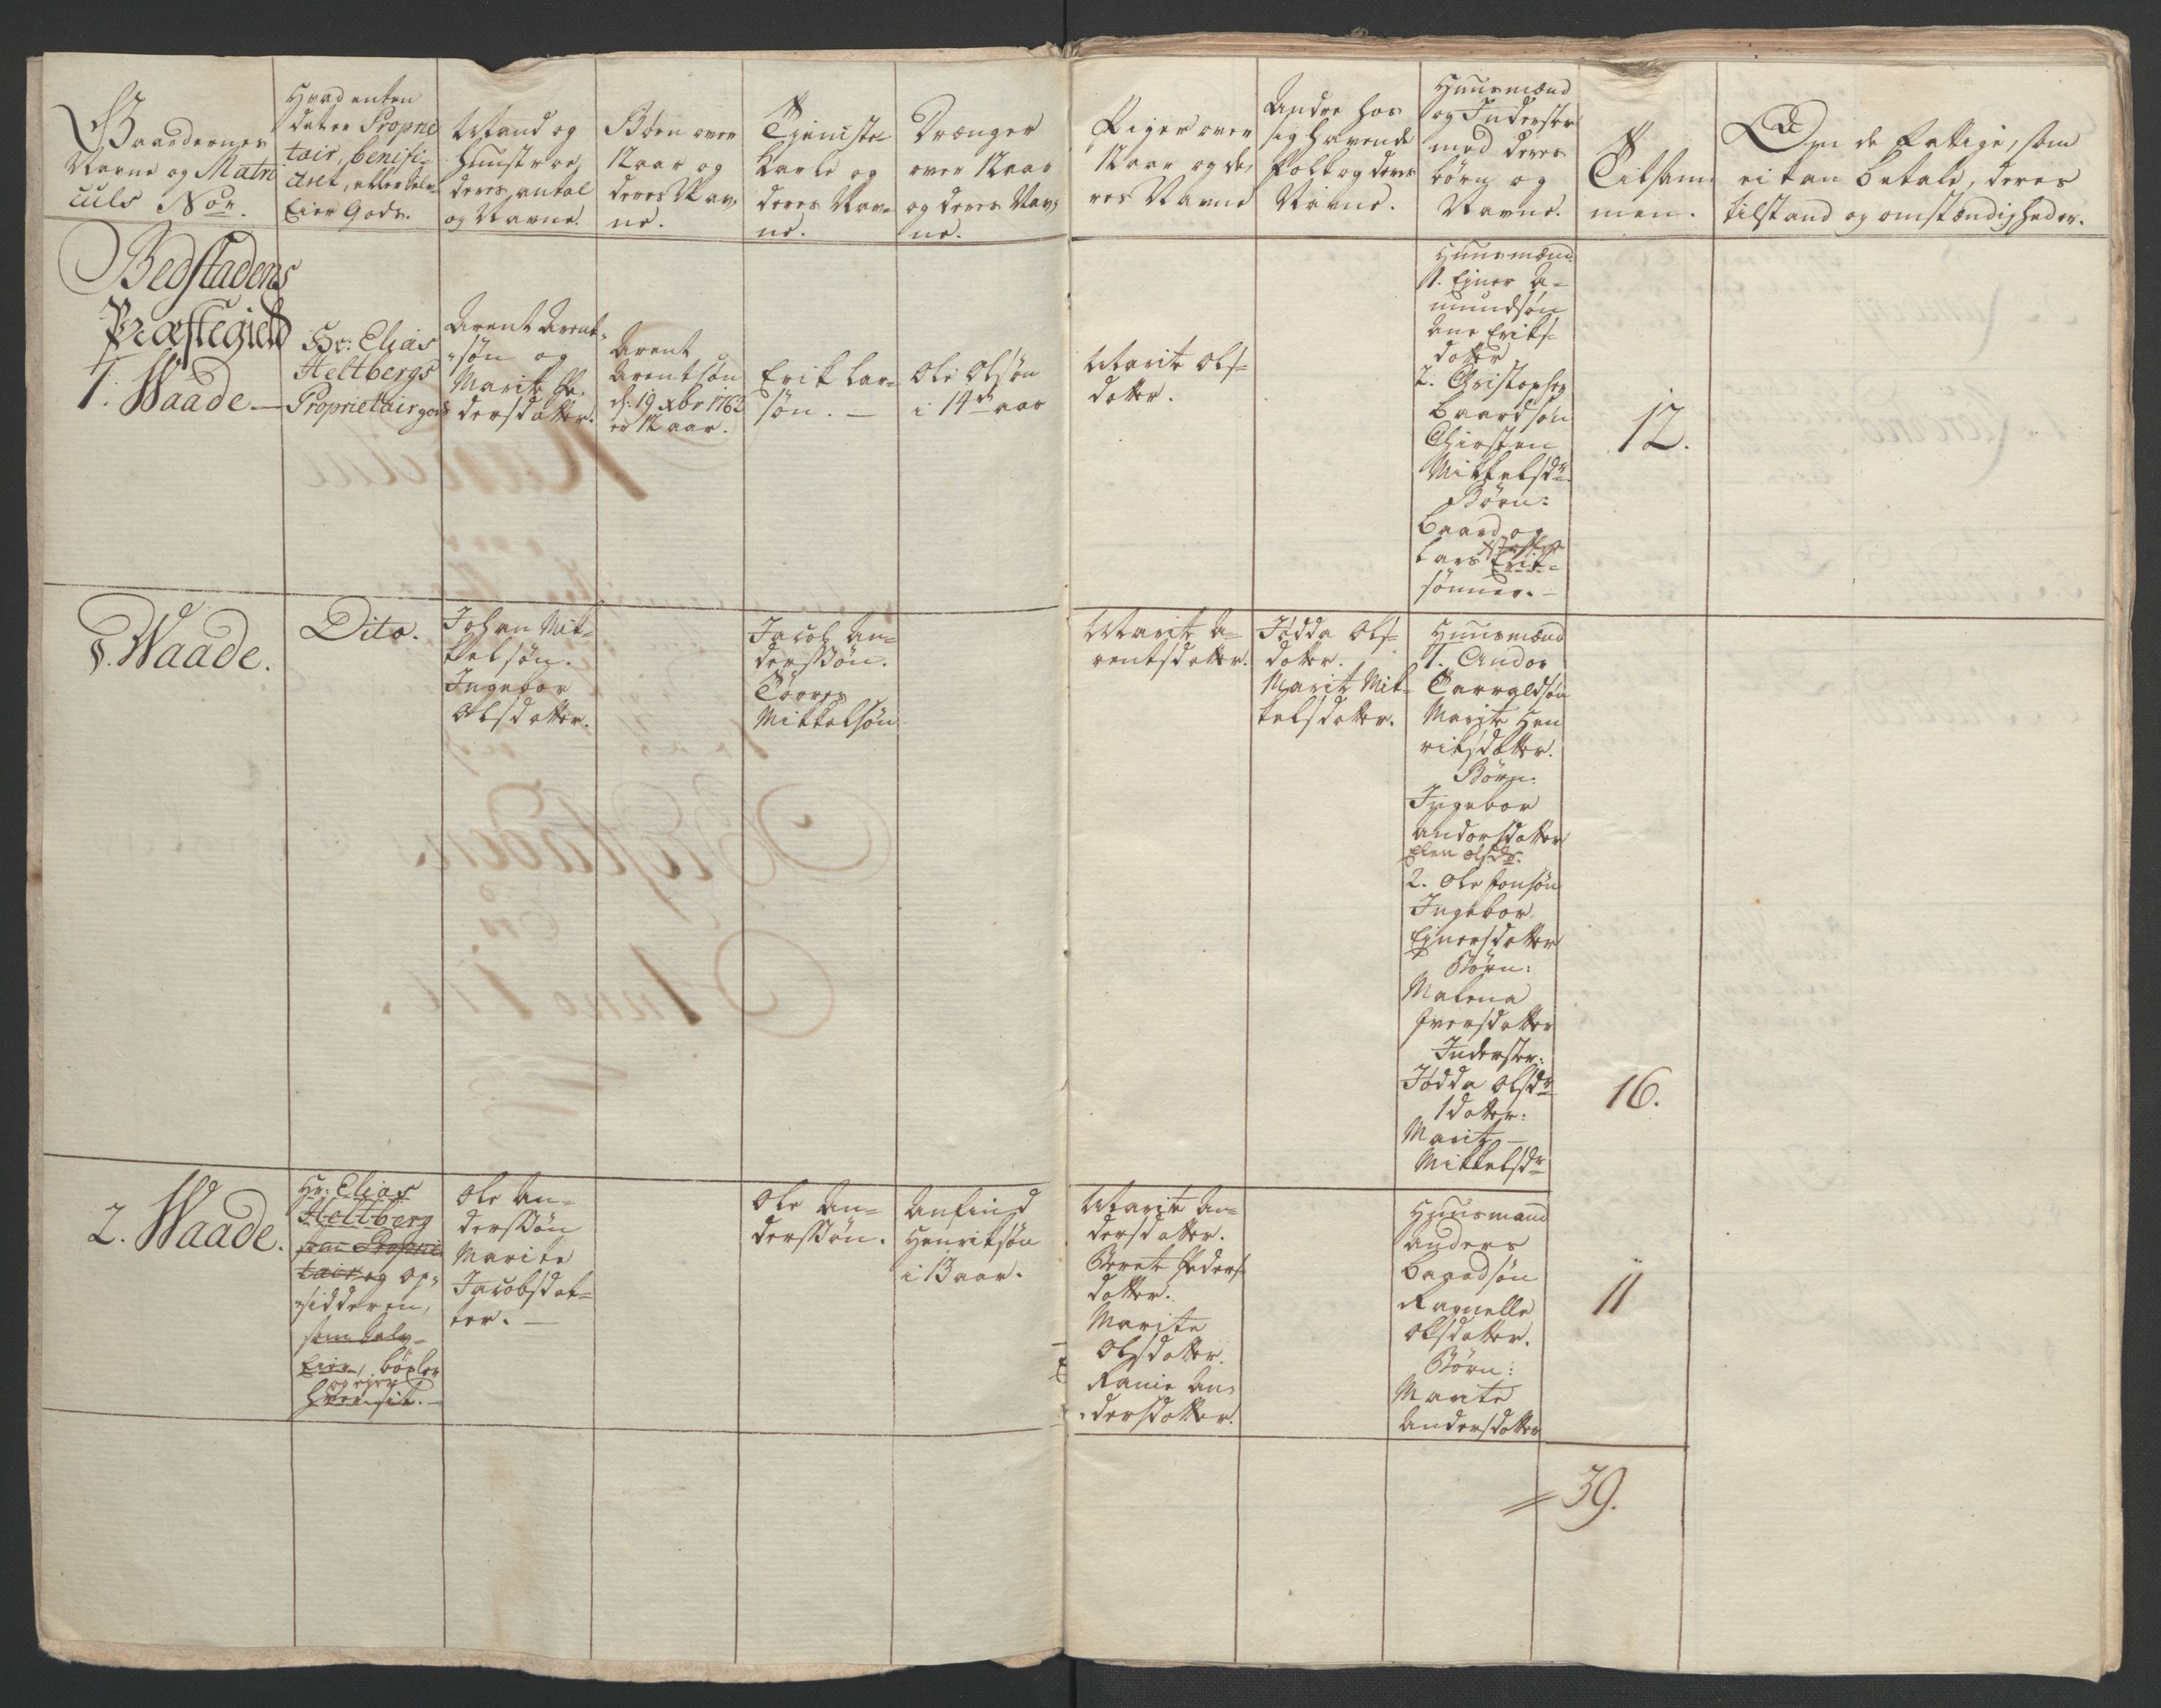 Gaardernes
Navne og Matri
culs Nor.
Hvad enten
det er Proprie
tair, benifi-
ciret, eller Selv
Eier Gods.
Mand og
Hustroe,
deres antal
og Navne.
Børn over
12 aar og
deres Nav-
ne.
Tjeniste-
Karle og
deres Nav-
ne.
Drænger
over 12 aar
og deres Nav-
ne.
Piger over
12 aar og de-
res Navne
Andre hos
sig havende
Folk og deres
Navne.
Huusmænd
og Inderster
med deres
børn og
Navne.
Tilsam-
men.
Om de Fattige, som
ei kan betale, deres
tilstand og omstændigheder.
Bedstadens
Præstegield
1. Waade.
Hr: Elias
Heltbergs
Proprietairgods
Arent Arent-
søn og
Marite Pe-
dersdatter.
Arent
Arentsøn
d: 19 xbr 1762
er 12 aar.
Erik Lar-
søn.
Ole Olsøn
i 14de aar
Marit Ols-
datter.
Huusmænd.
1. Ejner A-
mundsøn
Ane Eriks-
datter
2. Christopher
Baardsøn
Chirsten
Mikkelsdr
Børn:
Baard og
Lars Erik-
sønner.
12.
1. Waade.
Dito.
Johan Mik-
kelsøn.
Ingebor
Olsdatter.
Jacob An-
dersSøn.
Tørres
Mikkelsøn
Marit A-
rentsdatter.
Jødda Ols-
datter.
Marit Mik-
kelsdatter.
Huusmænd
1. Andor
Tarraldsøn
Marite Hen
riksdatter.
Børn:
Ingebor
Andorsdatter
Elen Olsdr.
2. Ole Jonsøn
Ingebor
Ejnersdatter
Børn:
Malena
Iversdatter
Inderster:
Jødda Olsdr
1 datter:
Marit
Mikkelsdr
16.
2. Waade.
Hr: Elias
Heltberg
som Proprie-
tair og Op-
sidderen,
som Selv-
Eier, böxler
og ejer
hver sit.
Ole An-
dersSøn
Marite
Jacobsdat-
ter.
Ole An-
dersSøn.
Anfind
Henriksøn
i 13 aar.
Marite An-
dersdatter.
Beret Peders-
datter.
Marite
Olsdatter.
Ranie An-
dersdatter.
Huusmand
Anders
Baardsøn
Ragnelle
Olsdatter.
Børn:
Marite
Andersdatter
11
39.